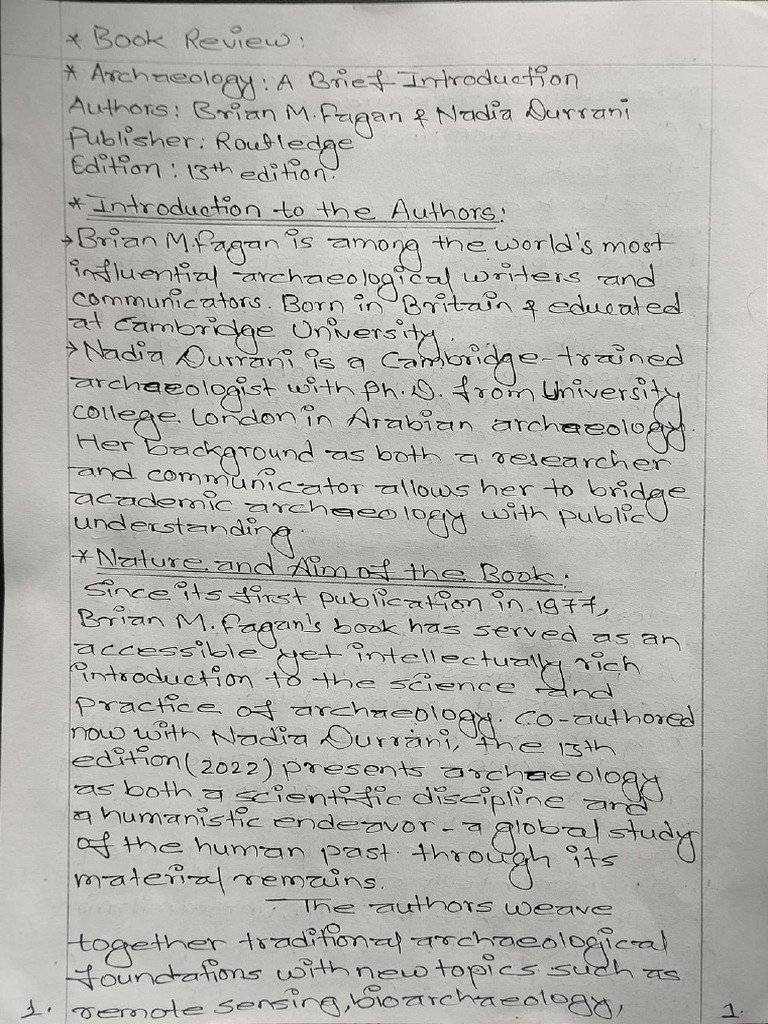 * Book Review:
* Archaeology: A Brief Introduction
Authors: Brian M. Fagan & Nadia Durrani
Publisher: Routledge
Edition: 13th edition.
* Introduction to the Authors:
→ Brian M. Fagan is among the world's most
influential archaeological writers and
communicators. Born in Britain & educated
at Cambridge University.
→ Nadia Durrani is a Cambridge-trained
archaeologist with Ph.D. from University
college. London in Arabian archaeology.
Her background as both a researcher
and communicator allows her to bridge
academic archaeology with public
understanding.
* Nature and Aim of the Book:
Since its first publication in 1977,
Brian M. Fagan's book has served as an
accessible yet intellectually rich
introduction to the science and
practice of archaeology. Co-authored
now with Nadia Durrani, the 13th
edition (2022) presents archaeology
as both a scientific discipline and
a humanistic endeavor - a global study
of the human past through its
material remains.
The authors weave
together traditional archaeological
foundations with new topics such as
1. remote sensing, bioarchaeology, 1.